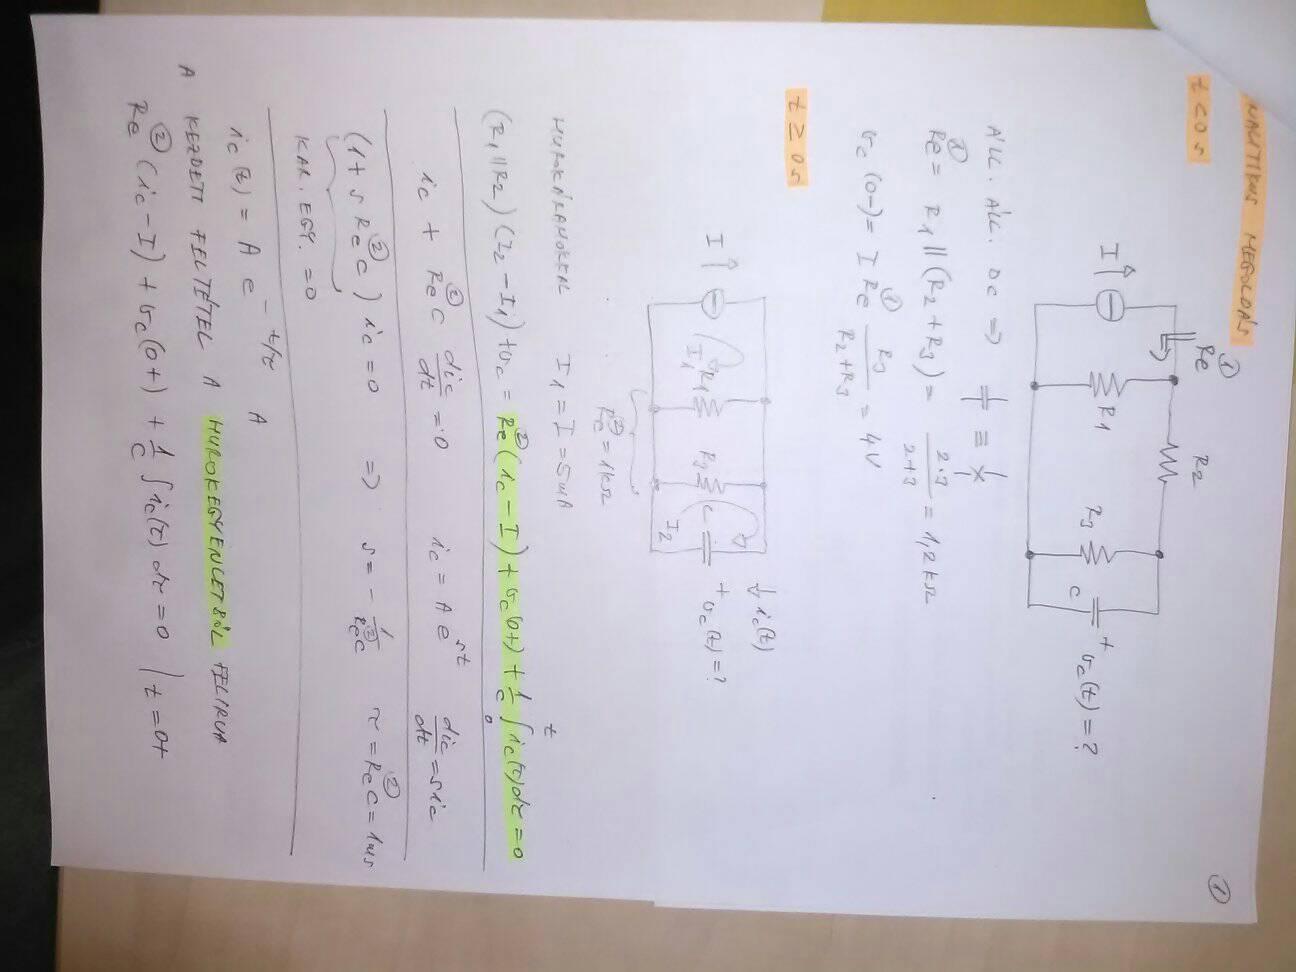 ①
NALITIKUS MEGOLDÁS
t < 0s
I
Re ①
R1
R2
R3
C
+ vc(t) = ?
ÁLL. ÁLL. DC ⇒ ≡
Re① = R1 || (R2 + R3) = 2·3/(2+3) = 1,2 kΩ
vc(0-) = I Re① R3/(R2+R3) = 4V
t ≥ 0s
I
I1
R1
R3
C
I2
ic(t)
+ vc(t) = ?
Re② = 1kΩ
HUROKÁRAMOKKAL I1 = I = 5mA
(R1||R2)(I2 - I1) + vc = Re②(ic - I) + vc(0+) + 1/C ∫0t ic(τ)dτ = 0
ic + Re②C dic/dt = 0 ic = A e^st dic/dt = s ic
(1 + s Re②C) ic = 0 ⇒ s = - 1/Re②C τ = Re②C = 1ms
KAR. EGY. = 0
ic(t) = A e^-t/τ A
A KEZDETI FELTÉTEL A HUROKEGYENLETBŐL FELÍRVA
Re②(ic - I) + vc(0+) + 1/C ∫ ic(τ)dτ = 0 | t = 0+